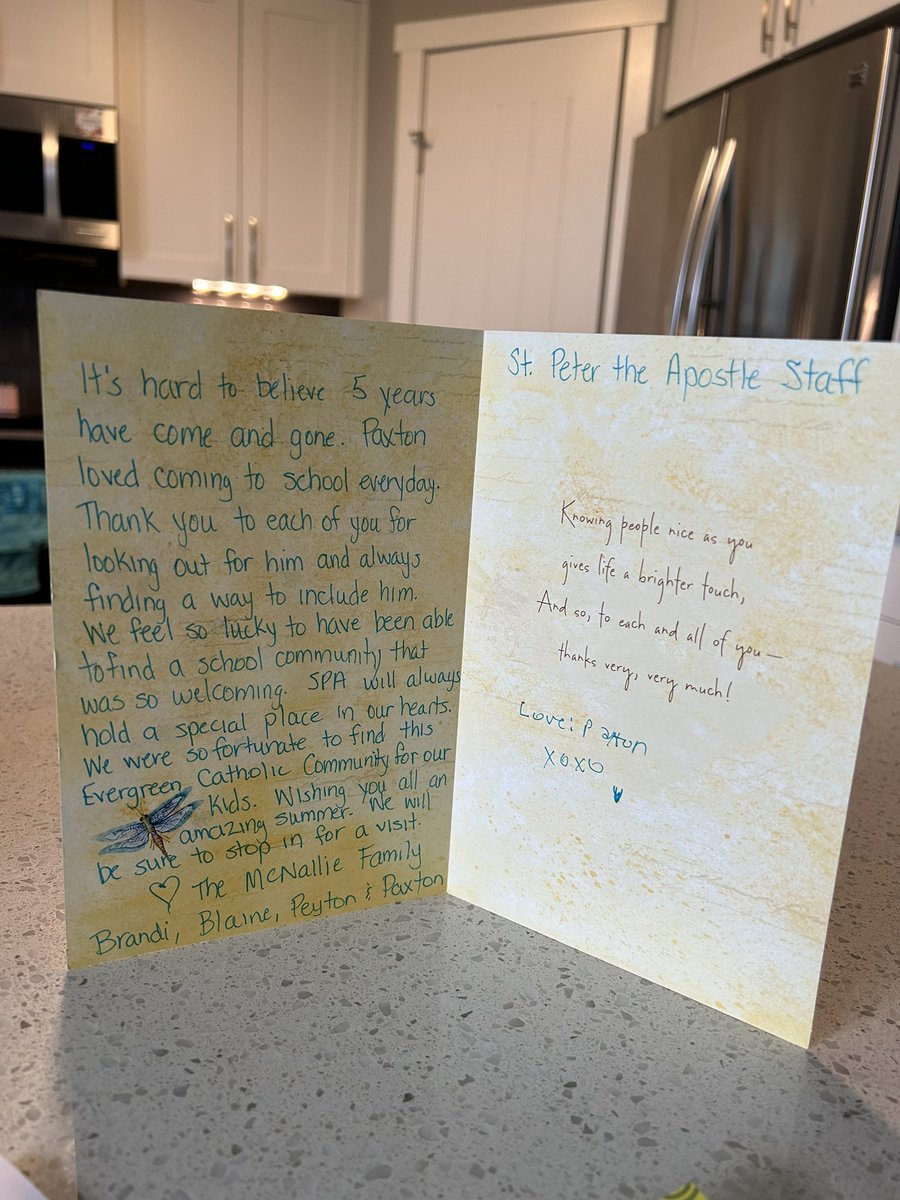 It's hard to believe 5 years
have come and gone. Paxton
loved coming to school everyday.
Thank you to each of you for
looking out for him and always
finding a way to include him.
We feel so lucky to have been able
to find a school community that
was so welcoming. SPA will always
hold a special place in our hearts.
We were so fortunate to find this
Evergreen Catholic Community for our
kids. Wishing you all an
amazing summer. We will
be sure to stop in for a visit.
♡ The McNallie Family
Brandi, Blaine, Peyton & Paxton
St. Peter the Apostle Staff
Knowing people nice as you
gives life a brighter touch,
And so, to each and all of you—
thanks very, very much!
Love: Paxton
XOXO